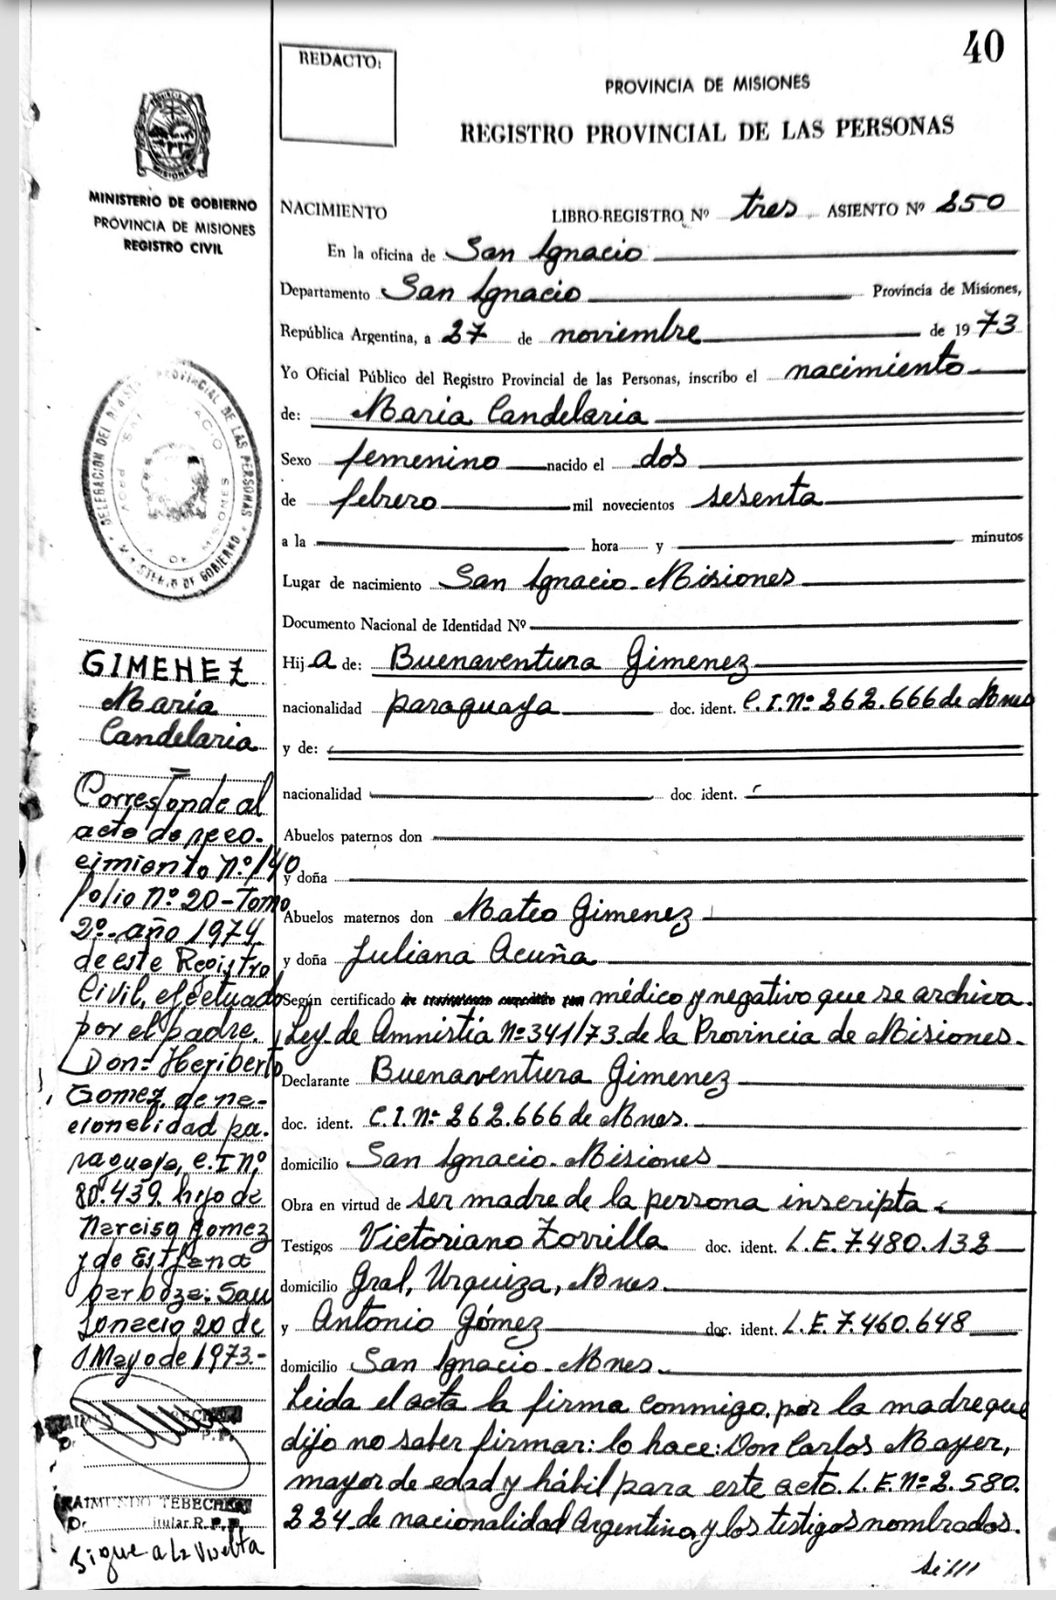 40
REDACTO:
PROVINCIA DE MISIONES
REGISTRO PROVINCIAL DE LAS PERSONAS
MISIONES
MINISTERIO DE GOBIERNO
PROVINCIA DE MISIONES
REGISTRO CIVIL
NACIMIENTO LIBRO-REGISTRO Nº tres ASIENTO Nº 250
En la oficina de San Ignacio
Departamento San Ignacio Provincia de Misiones,
República Argentina, a 27 de noviembre de 1973
Yo Oficial Público del Registro Provincial de las Personas, inscribo el nacimiento
de: María Candelaria
Sexo femenino nacido el dos
de febrero mil novecientos sesenta
a la hora y minutos
Lugar de nacimiento San Ignacio-Misiones
Documento Nacional de Identidad Nº
Hija de: Buenaventura Gimenez
nacionalidad paraguaya doc. ident. C.I.Nº 262.666 de Mnes
y de:
nacionalidad doc. ident.
Abuelos paternos don
y doña
Abuelos maternos don Mateo Gimenez
y doña Juliana Acuña
Según certificado médico y negativo que se archiva.
Ley de Amnistía Nº 341/73 de la Provincia de Misiones.
Declarante Buenaventura Gimenez
doc. ident. C.I.Nº 262.666 de Mnes.
domicilio San Ignacio-Misiones
Obra en virtud de ser madre de la persona inscripta
Testigos Victoriano Zorrilla doc. ident. L.E.7.480.132
domicilio Gral, Urquiza, Mnes.
y Antonio Gómez doc. ident. L.E.7.460.648
domicilio San Ignacio-Mnes.
Leida el acta la firma conmigo por la madre que
dijo no saber firmar: lo hace: Don Carlos Mayer,
mayor de edad y hábil para este acto L.E.Nº 2.580.
224 de nacionalidad Argentina y los testigos nombrados.
Si///
DELEGACION DEL REGISTRO PROVINCIAL DE LAS PERSONAS
MINISTERIO DE GOBIERNO
SAN IGNACIO
MISIONES
GIMENEZ
María
Candelaria
Corresponde al
acto de reco-
cimiento Nº 140
folio Nº 20-Tomo
2º-año 1974
de este Registro
Civil, efectuado
por el padre.
Don: Heriberto
Gomez, de na-
cionalidad pa-
raguaya, C.I Nº
80.439. hijo de
Narciso Gomez
y de
Barboza: San
Ignacio 20 de
Mayo de 1973.-
RAIMUNDO TEBECHERI
Titular R.P.P.
Sigue a la Vuelta